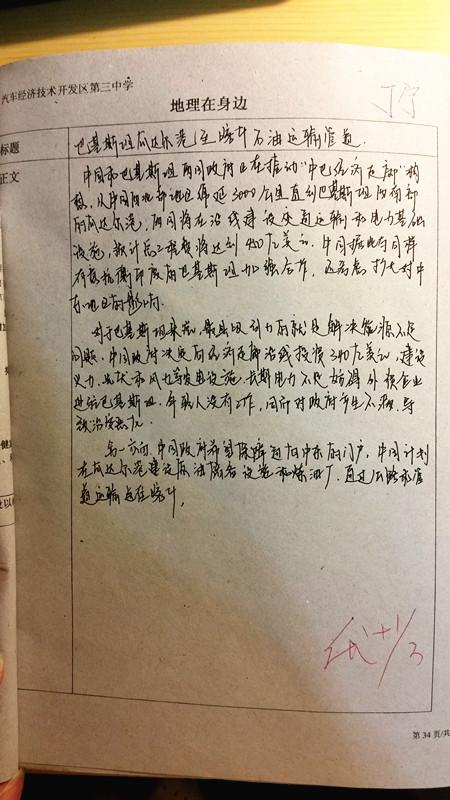 汽车经济技术开发区第三中学
丁宁
地理在身边
标题
巴基斯坦瓜达尔港至喀什石油运输管道.
正文
中国和巴基斯坦两国政府正在推动"中巴经济走廊"构
想,从中国西北部地区绵延3000公里直到巴基斯坦西南部
的瓜达尔港,两国将在沿线建设交通运输和电力基础
设施,预计总工程费将达到450亿美元.中国
印度的巴基斯坦加强合作,还考虑扩大对中
东地区的影响.
对于巴基斯坦来说,最具吸引力的就是解决能源不足
问题.中国政府决定向经济走廊沿线投资340亿美元,建设
火力、水力和风力等发电设施.长期电力不足妨碍外报企业
进驻巴基斯坦.年轻人没有工作,因而对政府产生不满,导
致治安恶化.
另一方面,中国政府希望保障通向中东的门户,中国计划
在瓜达尔港建设原油储备设施和炼油厂.通过公路和管
道运输运往喀什.
第 34 页/共